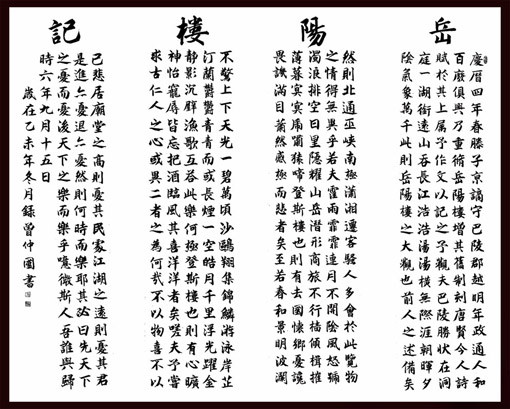 岳
慶曆四年春滕子京謫守巴陵郡越明年政通人和
百廢俱興乃重脩岳陽樓增其舊制刻唐賢今人詩
賦於其上屬予作文以記之予觀夫巴陵勝狀在洞
庭一湖銜遠山吞長江浩浩湯湯橫無際涯朝暉夕
陰氣象萬千此則岳陽樓之大觀也前人之述備矣
陽
然則北通巫峽南極瀟湘遷客騷人多會於此覽物
之情得無異乎若夫霪雨霏霏連月不開陰風怒號
濁浪排空日星隱耀山岳潛形商旅不行檣傾楫摧
薄暮冥冥虎嘯猿啼登斯樓也則有去國懷鄉憂讒
畏譏滿目蕭然感極而悲者矣至若春和景明波瀾
樓
不驚上下天光一碧萬頃沙鷗翔集錦鱗游泳岸芷
汀蘭鬱鬱青青而或長煙一空皓月千里浮光躍金
靜影沉璧漁歌互答此樂何極登斯樓也則有心曠
神怡寵辱皆忘把酒臨風其喜洋洋者矣嗟夫予嘗
求古仁人之心或異二者之為何哉不以物喜不以
記
己悲居廟堂之高則憂其民處江湖之遠則憂其君
是進亦憂退亦憂然則何時而樂耶其必曰先天下
之憂而憂後天下之樂而樂乎噫微斯人吾誰與歸
時六年九月十五日
歲在乙未年冬月錄曾仲國書